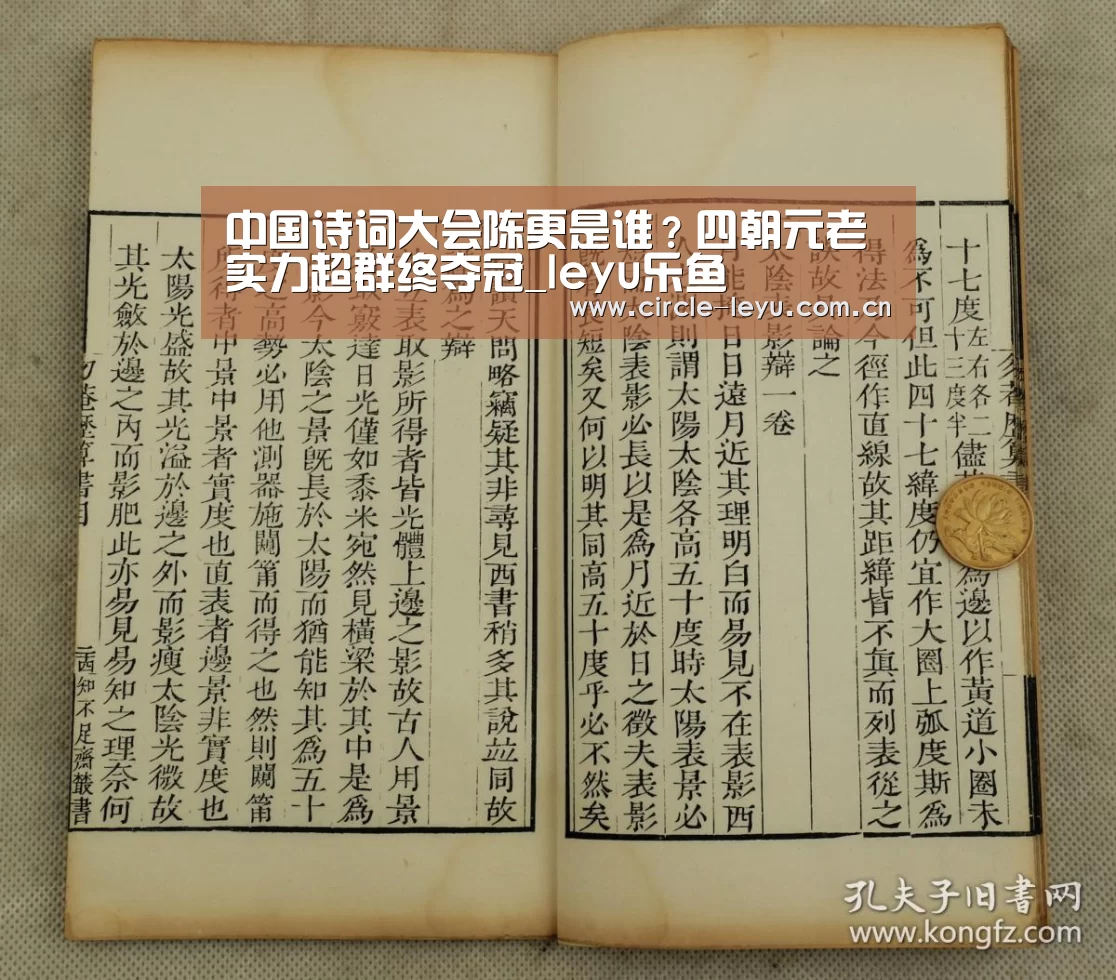 中国诗词大会陈更是谁？四朝元老
实力超群终夺冠_leyu乐鱼
www.circle-leyu.com.cn
十七度左右各二十三度半儘
為邊以作黃道小圈未
為不可但此四十七緯度仍宜作大圈上弧度斯為
得法
今徑作直線故其距緯皆不真而列表從之
訣故
論之
太陰表影辯一卷
日日遠月近其理明白而易見不在表影西
則謂太陽太陰各高五十度時太陽表景必
陰表影必長以是為月近於日之徵夫表影
短矣又何以明其同高五十度乎必不然矣
天問略竊疑其非尋見西書稍多其說竝同故
為之辯
表取影所得者皆光體上邊之影故古人用景
達日光僅如黍米宛然見橫梁於其中是為
影今太陰之景旣長於太陽而猶能知其為五十
之高勢必用他測器施闚筩而得之也然則闚筩
所得者中景中景者實度也直表者邊景非實度也
太陽光盛故其光溢於邊之外而影瘦太陰光微故
其光斂於邊之內而影肥此亦易見易知之理奈何
勿菴歷算書目
知不足齋叢書
孔夫子旧书网
www.kongfz.com